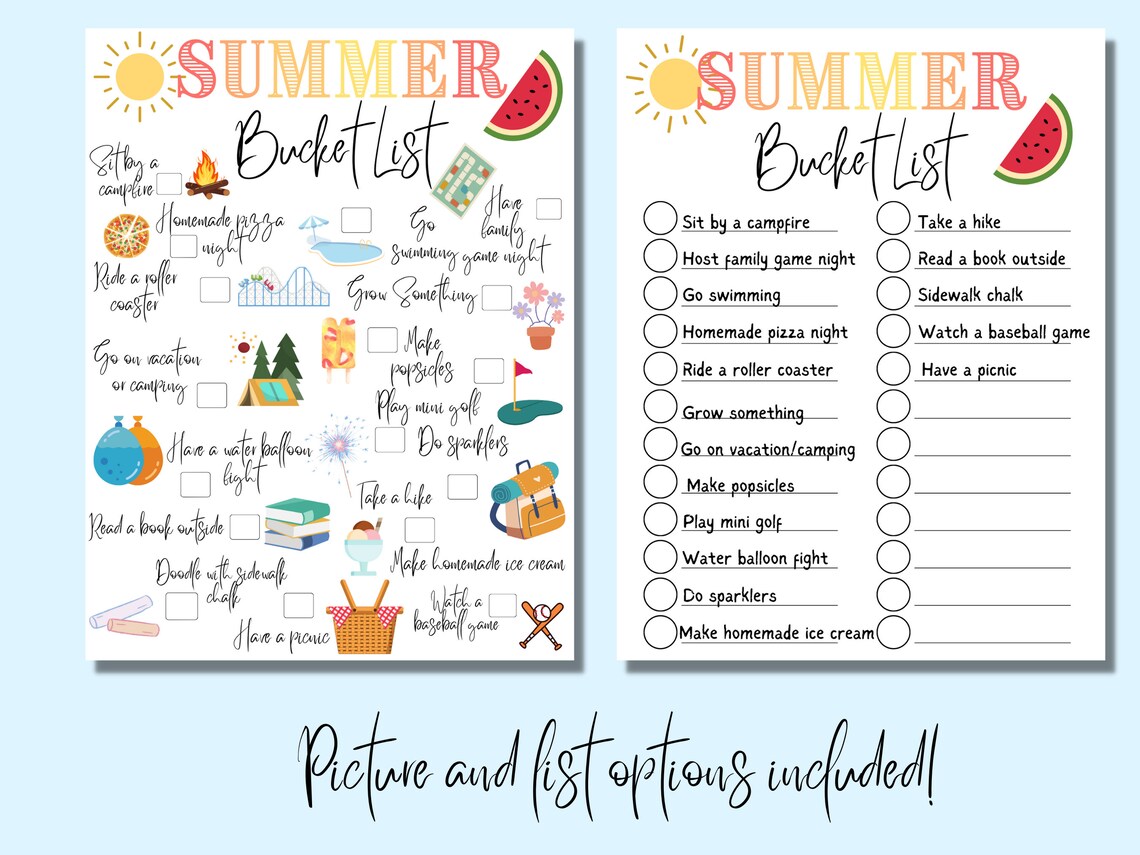 SUMMER
Bucket List
Sit by a
campfire
Have
family
game night
Homemade pizza
night
Go
swimming
Ride a roller
coaster
Grow Something
Go on vacation
or camping
Make
popsicles
Play mini golf
Have a water balloon
fight
Do sparklers
Take a hike
Read a book outside
Make homemade ice cream
Doodle with sidewalk
chalk
Have a picnic
Watch a
baseball game
SUMMER
Bucket List
Sit by a campfire
Host family game night
Go swimming
Homemade pizza night
Ride a roller coaster
Grow something
Go on vacation/camping
Make popsicles
Play mini golf
Water balloon fight
Do sparklers
Make homemade ice cream
Take a hike
Read a book outside
Sidewalk chalk
Watch a baseball game
Have a picnic
Picture and list options included!